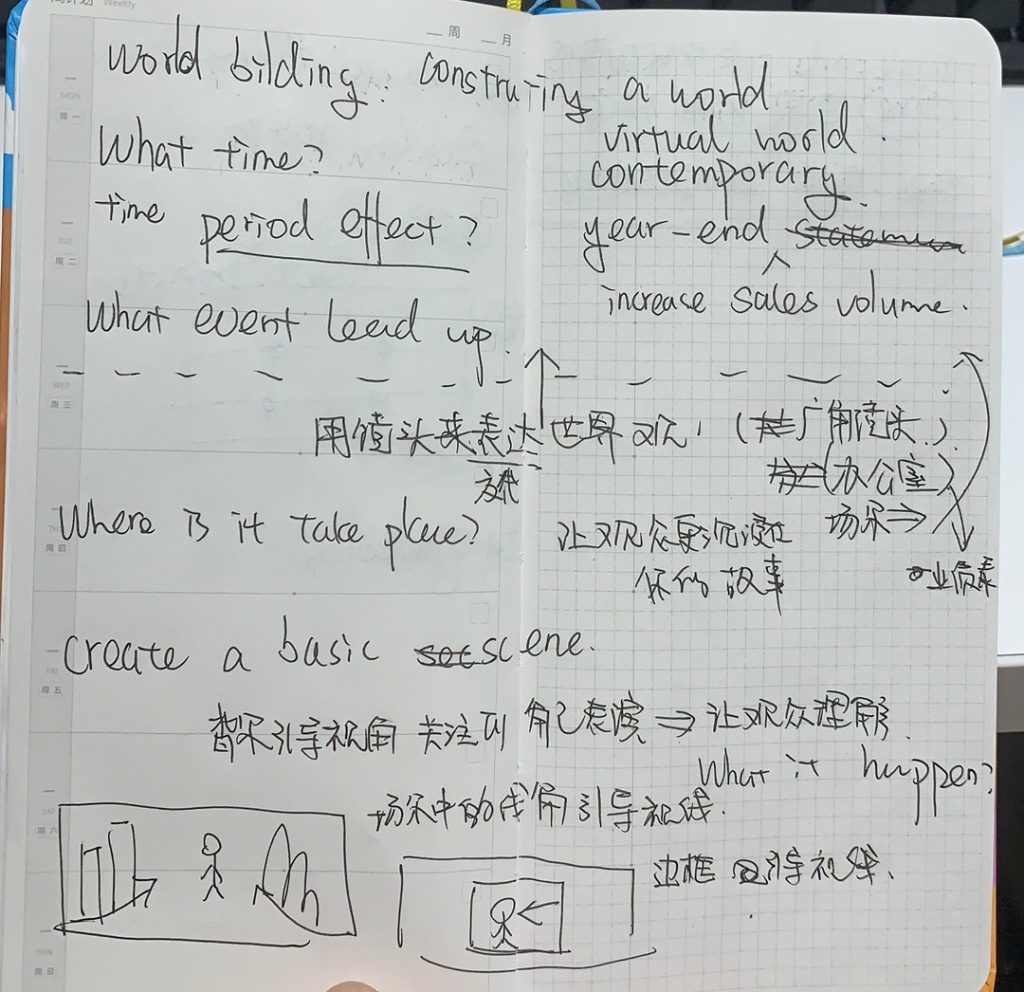 周计划 Weekly
周 月
World bilding: construing a world
virtual world.
MON
周一
What time?
contemporary.
time period effect?
year-end
TUE
周二
increase sales volume.
What event lead up.
WED
周三
用镜头来表达世界观, (广角镜头)
(办公室)
Where is it take place?
周四
让观众更沉浸在 场景⇒
你的故事
create a basic scene.
FRI
周五
引导视角 关注到 角色表演 ⇒ 让观众理解
What it happen?
场景中的 引导视线.
SAT
周六
边框 引导视线.
SUN
周日